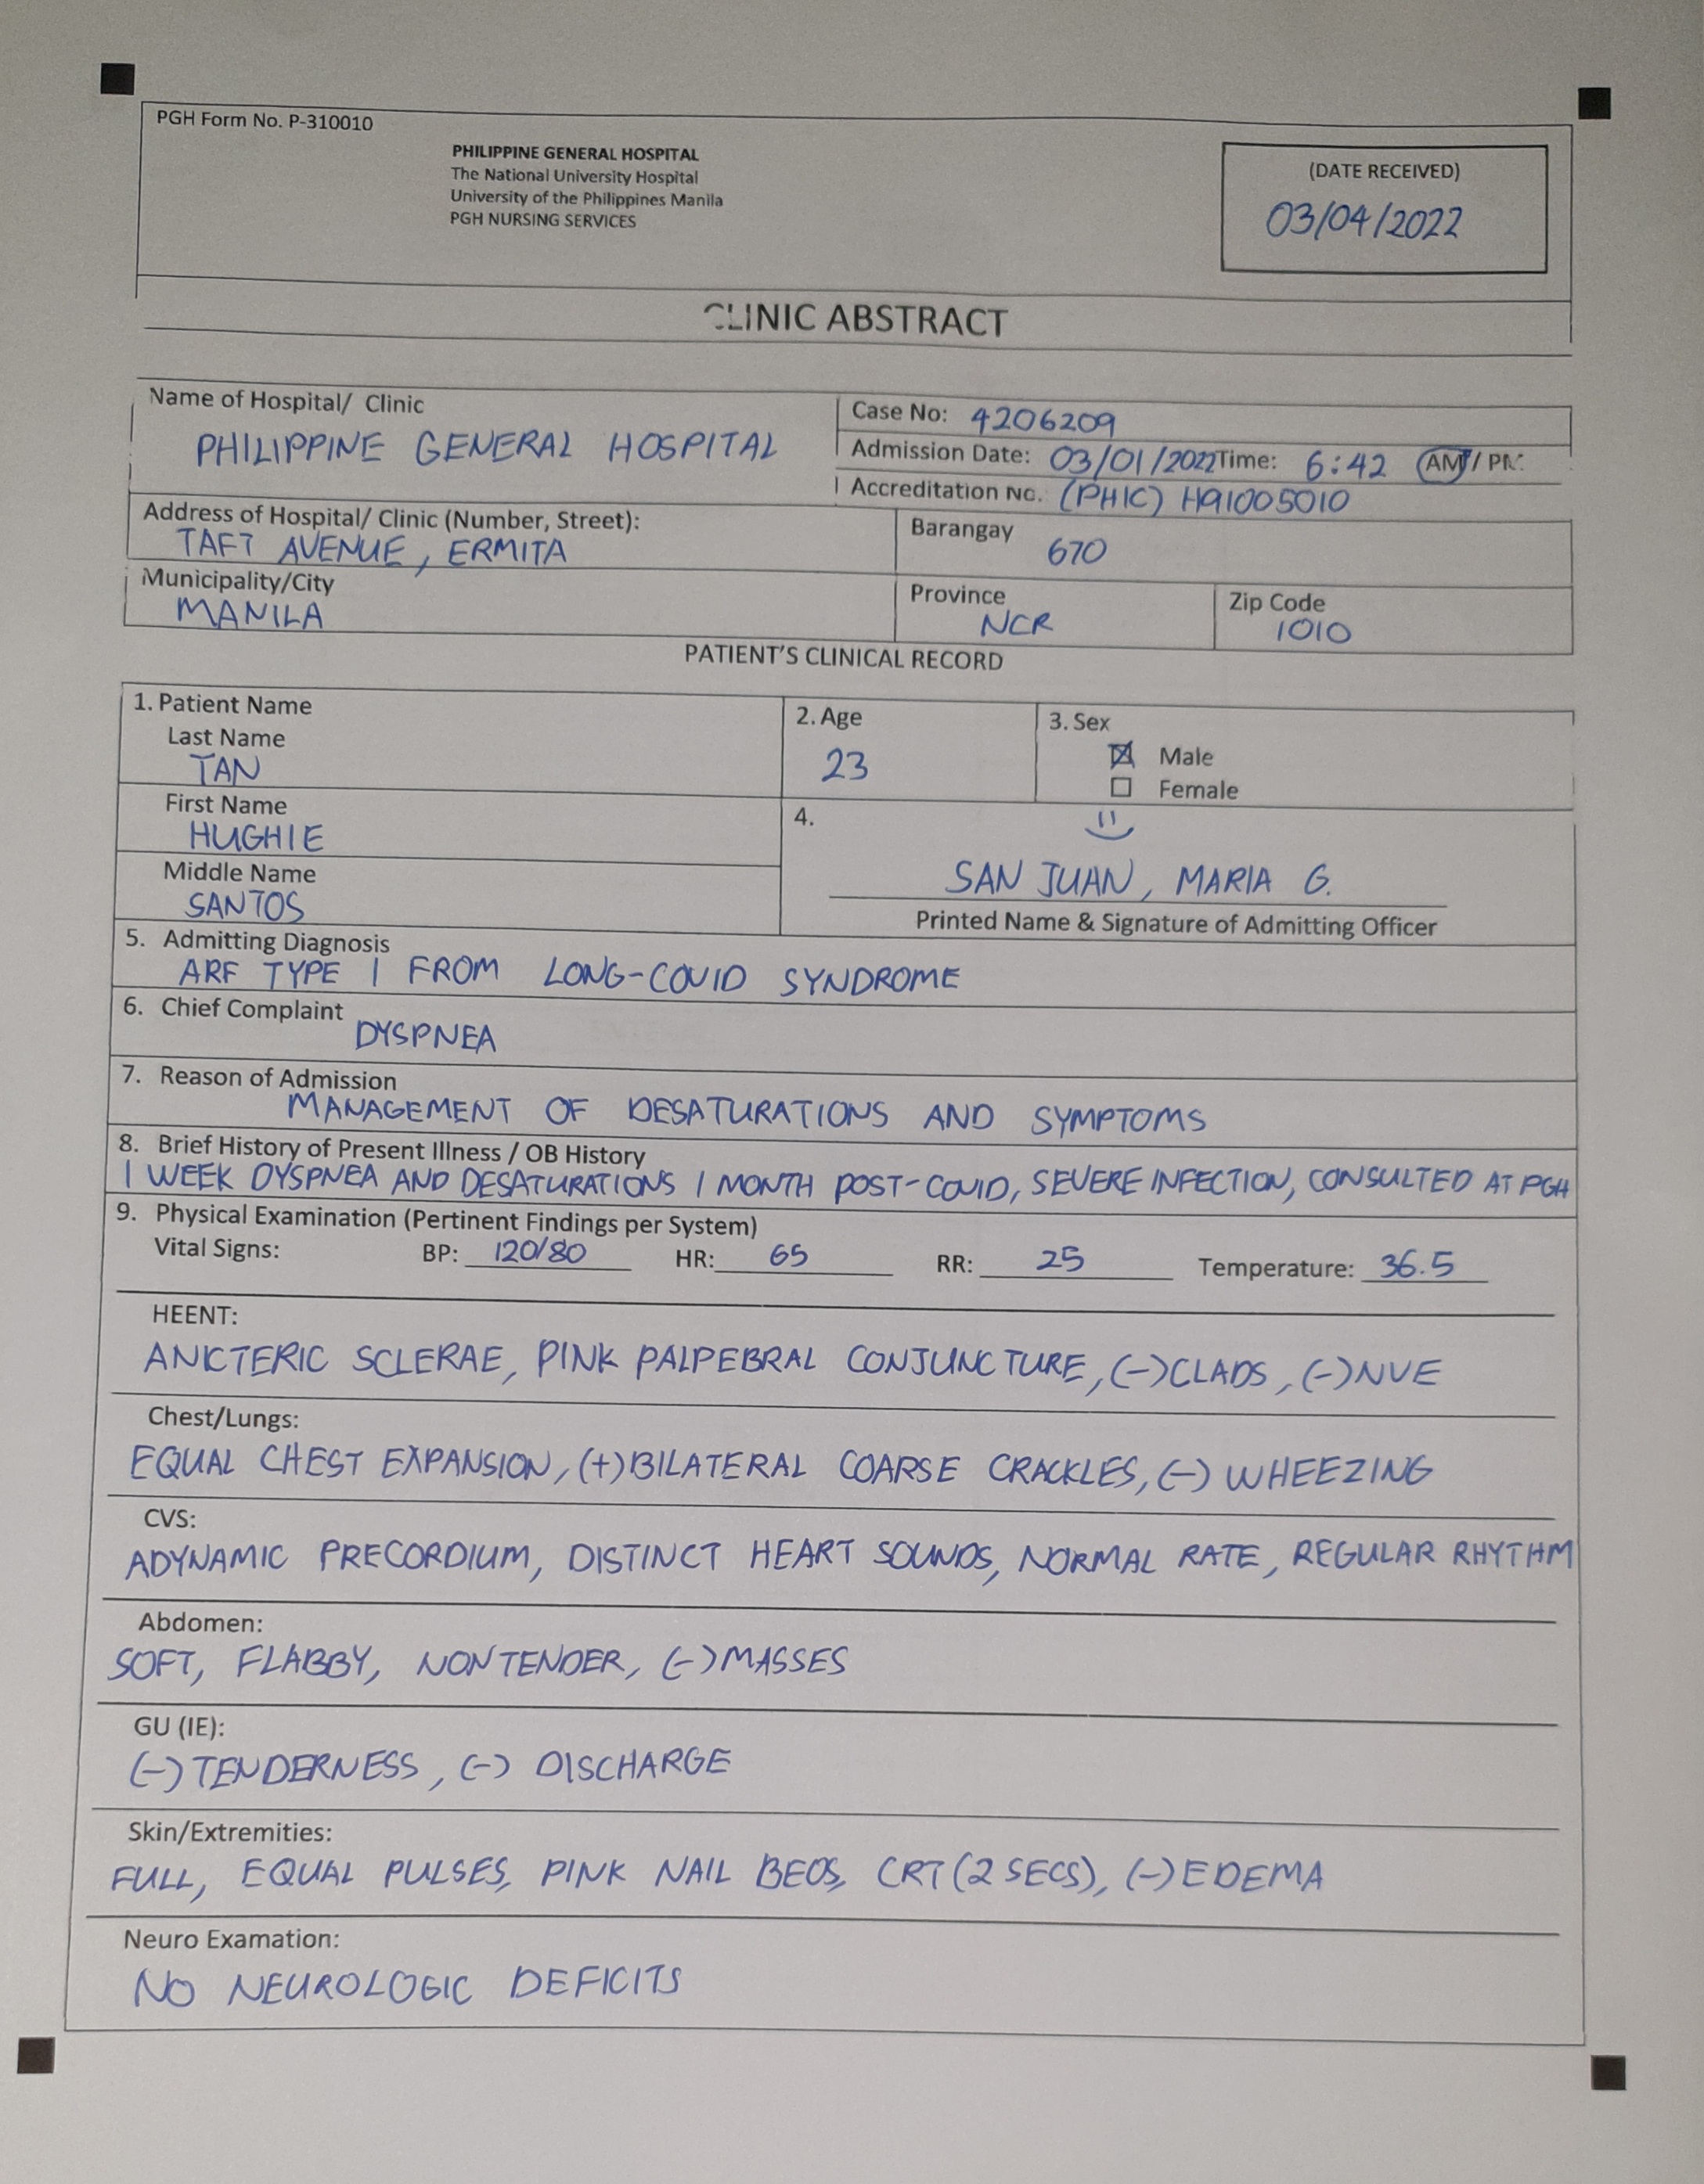 PGH Form No. P-310010
PHILIPPINE GENERAL HOSPITAL
The National University Hospital
University of the Philippines Manila
PGH NURSING SERVICES
(DATE RECEIVED)
03/04/2022
CLINIC ABSTRACT
Name of Hospital/ Clinic
PHILIPPINE GENERAL HOSPITAL
Case No: 4206209
Admission Date: 03/01/2022 Time: 6:42 AM / PM
Accreditation No. (PHIC) H91005010
Address of Hospital/ Clinic (Number, Street):
TAFT AVENUE, ERMITA
Barangay
670
Municipality/City
MANILA
Province
NCR
Zip Code
1010
PATIENT'S CLINICAL RECORD
1. Patient Name
Last Name
TAN
2. Age
23
3. Sex
☒ Male
☐ Female
First Name
HUGHIE
Middle Name
SANTOS
4.
SAN JUAN, MARIA G.
Printed Name & Signature of Admitting Officer
5. Admitting Diagnosis
ARF TYPE 1 FROM LONG-COVID SYNDROME
6. Chief Complaint
DYSPNEA
7. Reason of Admission
MANAGEMENT OF DESATURATIONS AND SYMPTOMS
8. Brief History of Present Illness / OB History
1 WEEK DYSPNEA AND DESATURATIONS 1 MONTH POST-COVID, SEVERE INFECTION, CONSULTED AT PGH
9. Physical Examination (Pertinent Findings per System)
Vital Signs: BP: 120/80 HR: 65 RR: 25 Temperature: 36.5
HEENT:
ANICTERIC SCLERAE, PINK PALPEBRAL CONJUNCTURE, (-)CLADS, (-)NVE
Chest/Lungs:
EQUAL CHEST EXPANSION, (+)BILATERAL COARSE CRACKLES, (-) WHEEZING
CVS:
ADYNAMIC PRECORDIUM, DISTINCT HEART SOUNDS, NORMAL RATE, REGULAR RHYTHM
Abdomen:
SOFT, FLABBY, NONTENDER, (-)MASSES
GU (IE):
(-)TENDERNESS, (-) DISCHARGE
Skin/Extremities:
FULL, EQUAL PULSES, PINK NAIL BEDS, CRT (2 SECS), (-)EDEMA
Neuro Examation:
NO NEUROLOGIC DEFICITS